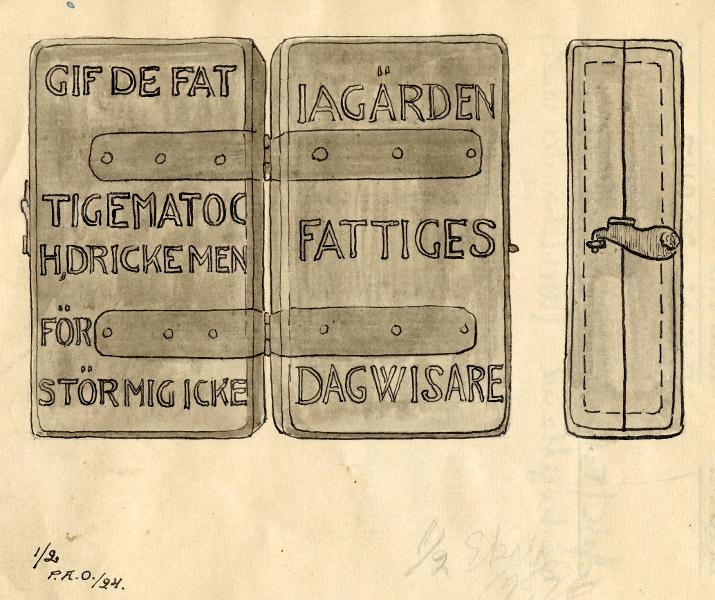 GIF DE FAT
TIGEMATOC
H,DRICKE MEN
FÖR
STÖR MIG ICKE
IAGÄRDEN
FATTIGES
DAGWISARE
1/2
P.A.O./24.
1/2